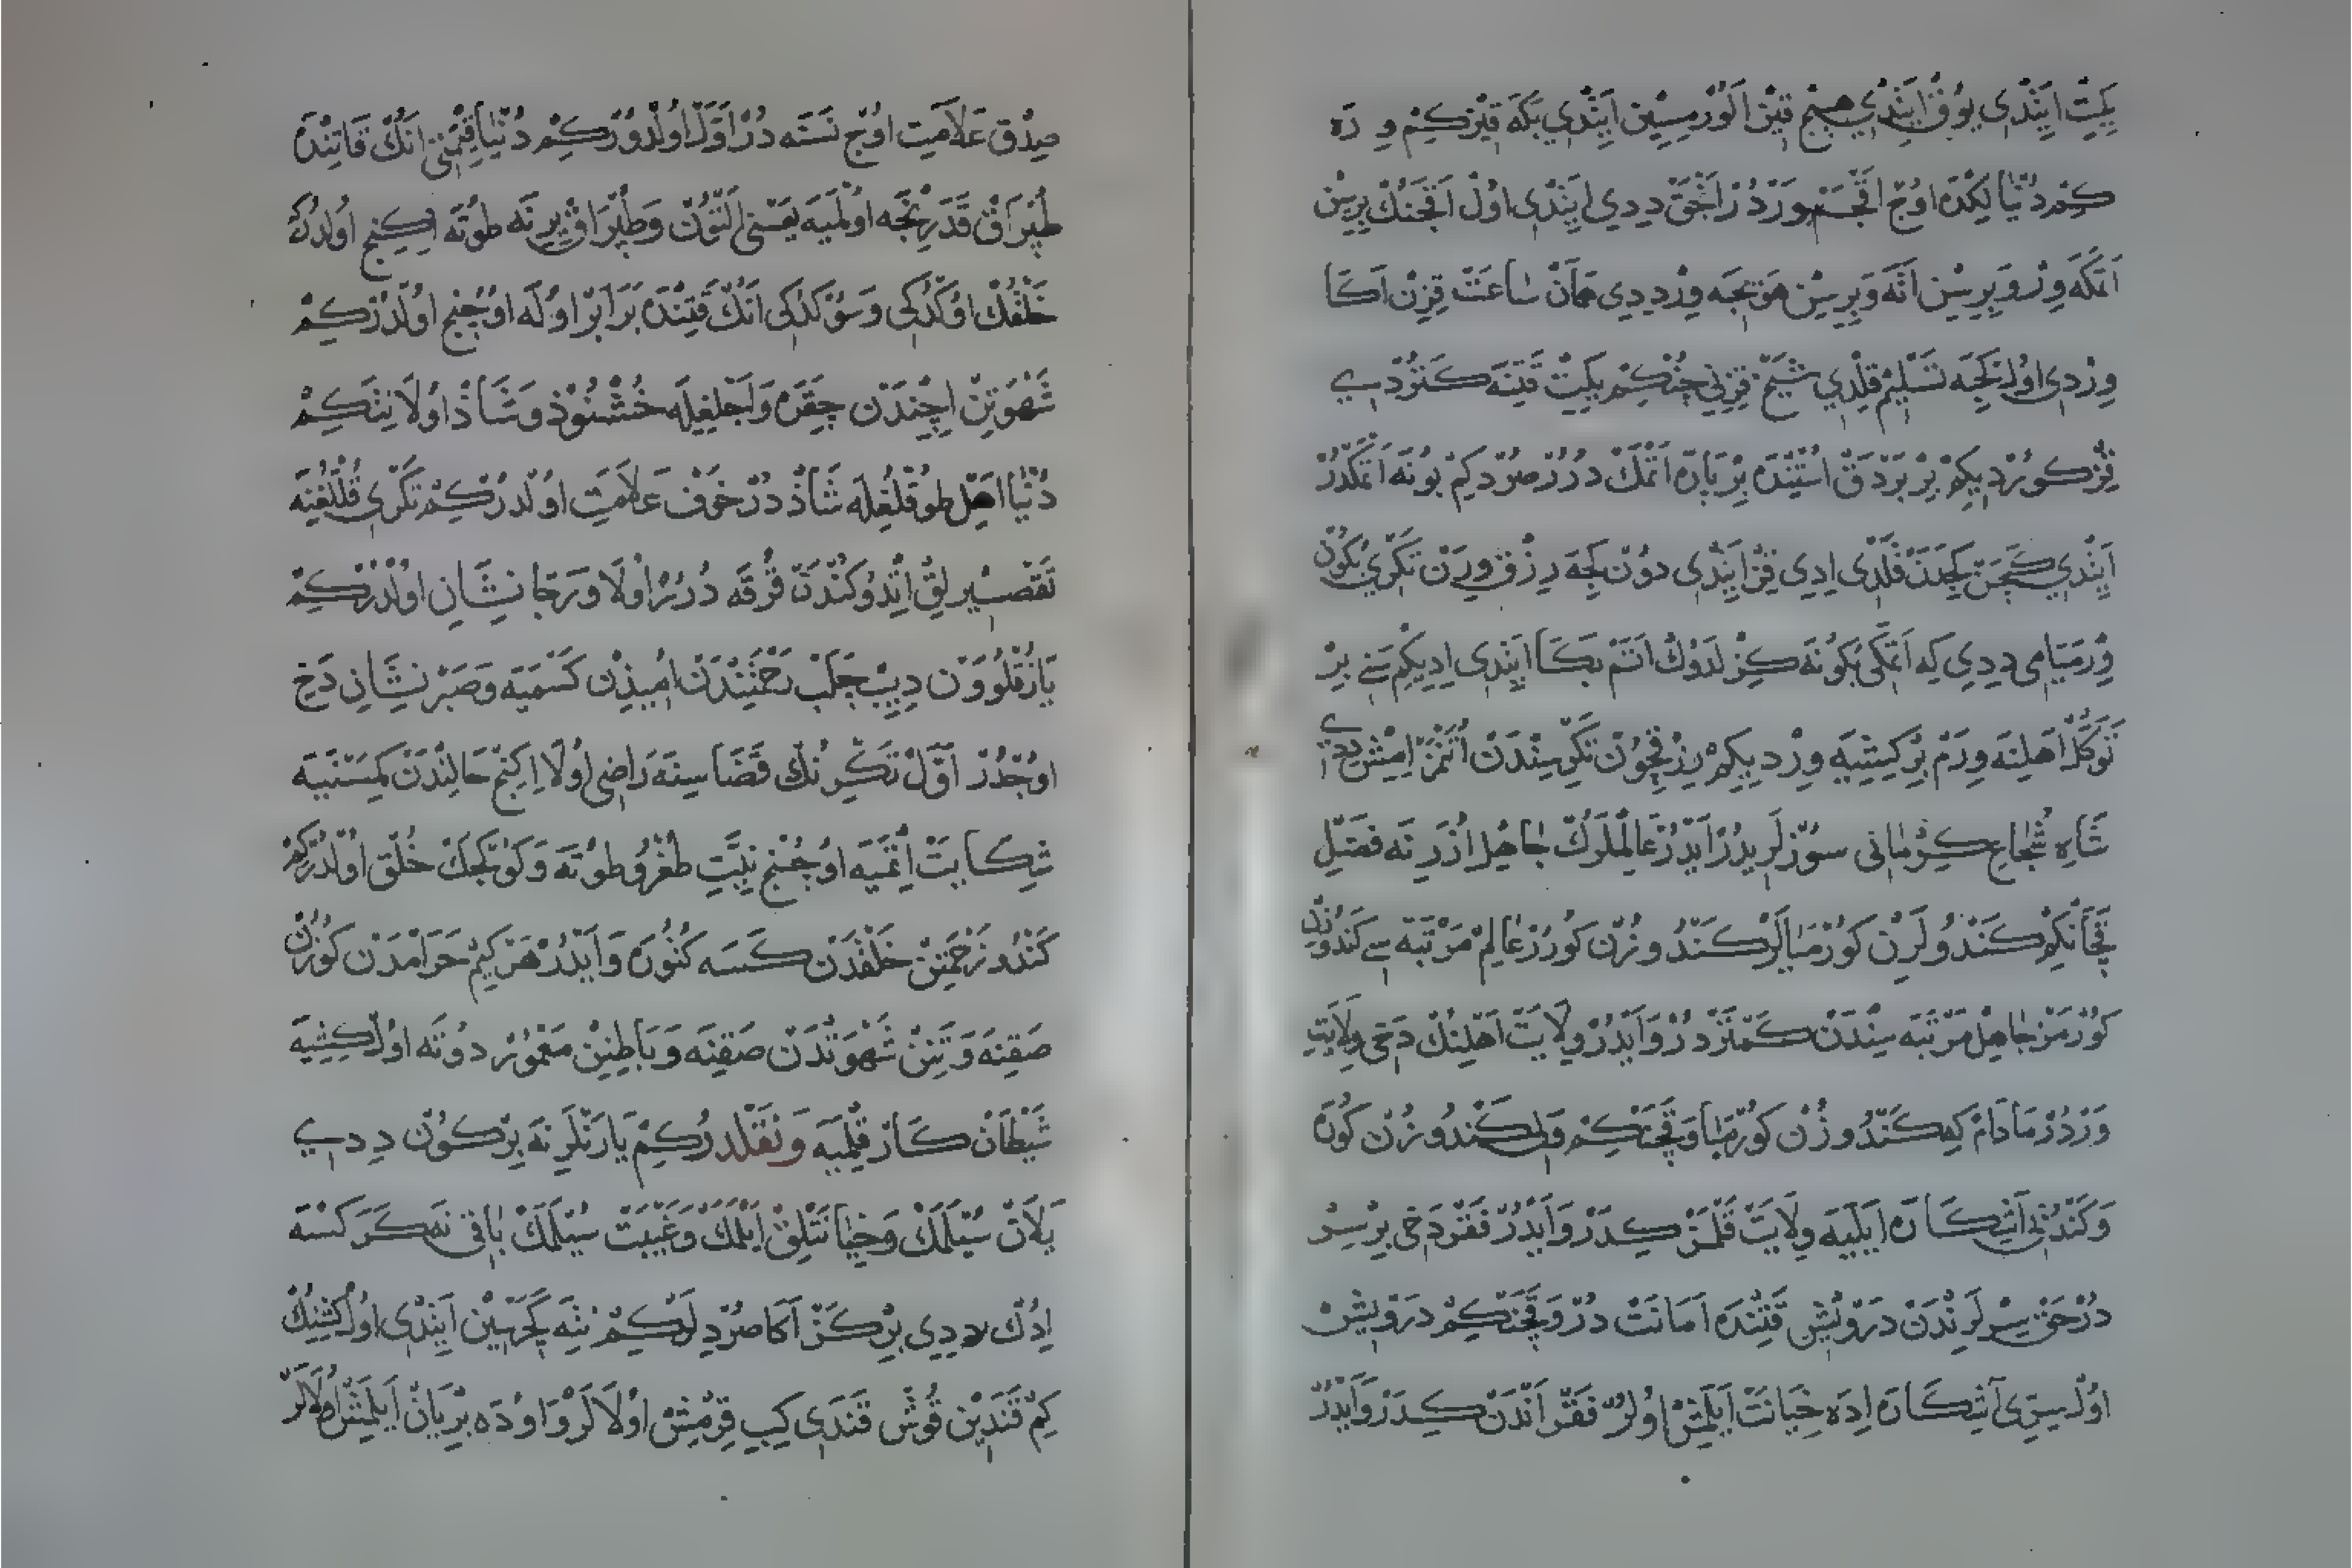 يكت ايندى يوق ايندي هيچ قيز الورميسين ايندي بكه قيز كم وره
كم دنيالكده اوچ اقچم وردر انجق ددي ايندى اول اقچنك برسن
اتمكه ور وبرسن انه وبرسن موجبه ور ددى همان ساعت قزن اكا
وردى اول كجه تسليم قلدي شيخ قزى چنكم يكيت قتنه كتوردي
قز كوردى كم بر بردق استنده بر پاره اتمك درر صردى كم بونه اتمكدر
ايندي كچن كجدن قلدى ادى قز ايندى دون كجه رزق ورن تكرى بكون
ورميامى ددي كه اتمكى بكونه كزلدوك اتم بكا ايندى اديكم سني بر
توكل اهلنه ورم بر كيشيه وردى كم رزقچون تكرسندن انمز امش ددى
شاه شجاع كرمانى سوزلريدر ايدر عالملرك جاهل اوزرنه فضلى
قچانكم كندولرن كورميالر كندوزن كورر عالم مرتبه سي كندوزن
كورمز جاهل مرتبه سندن كمتردر وايدر ولايت اهلنك دخى ولايت
وردر مادام كه كندوزن كورميا وقچنكم ولى كندوزن كوره
وكندزنى آشكاره ايليه ولايت قلمز كدر وايدر فقر دخى بر سر
در حق سرلرندن درويش قتنده امانت در وقچنكم درويش
اول سرى آشكاره اده خيانت ايلمش اولر فقر اندن كدر وايدر
صدق علامت اوچ نسنه در اول اولدوركم دنيا قيمتى انك قاتنده
طپراق قدرنجه اولميه يعنى التون وطپراق برنه طوته اكنج اولدركم
خلقك اوكدكى وسوكدكى انك قتنده برابر اوله اوچنج اولدركم
شهوتن اچندن چقره واجلغله خشنوذ وشاذ اولا ننكم
دنيا اهل طوقلغله شاذ در خوف علامت اولدركم تكرى قللغنه
تقصيرلق اتدوكندن قرقه درر اولا ورجا نشان اولدركم
يازقلوون ديب جلب رحمتندن اميذن كسميه وصبر نشان دخ
اوچدر اول تكرنك قضاسينه راضى اولا اكنج حالندن كمسنيه
شكايت اتميه اوچنج نيت طغرو طوته وكوكجك خلق اولدركم
كندو زحمتن خلقدن كسه كتوره وايدر هركيم حرامدن كوزن
صقنه وتنن شهوتدن صقنه وباطنن معمور دوته اول كشيه
شيطان كار قلميه ونقلدركم يارنلرنه بر كون ددي
يلان سيلمك وخيانتلق ايلمك وغيبت سيلمك باقى نه كركسه
ادك ددى بر كز اكا صردلركم نته كچرسن ايندى اول كشنك
كم قندين قوش قندى كبى قرمش اولالر واوده بريان ايلمش اولالر